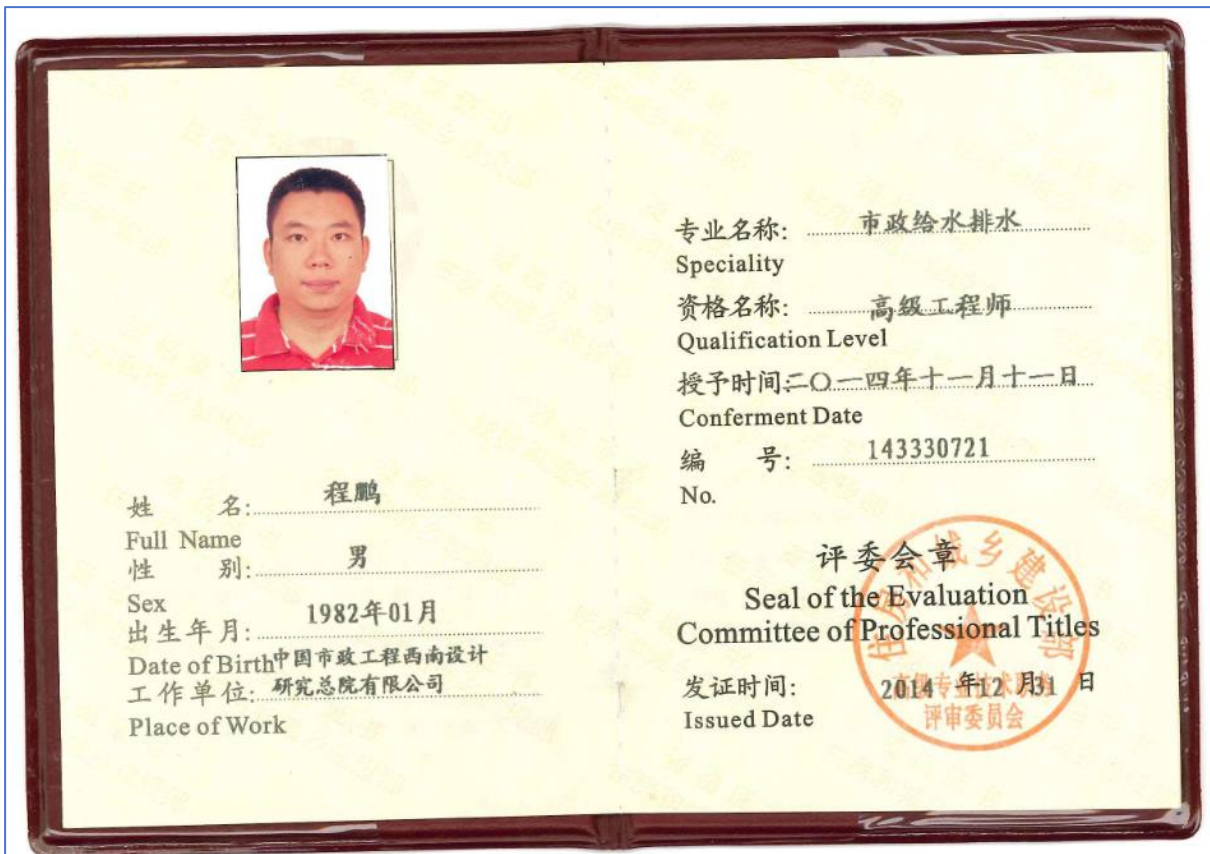 姓 名: 程鹏
Full Name
性 别: 男
Sex
出生年月: 1982年01月
Date of Birth
中国市政工程西南设计
工作单位: 研究总院有限公司
Place of Work
专业名称: 市政给水排水
Speciality
资格名称: 高级工程师
Qualification Level
授予时间: 二〇一四年十一月十一日
Conferment Date
编 号: 143330721
No.
评委会章
Seal of the Evaluation
Committee of Professional Titles
发证时间: 2014 年12 月31 日
Issued Date
住房和城乡建设部
高级专业技术职务
评审委员会